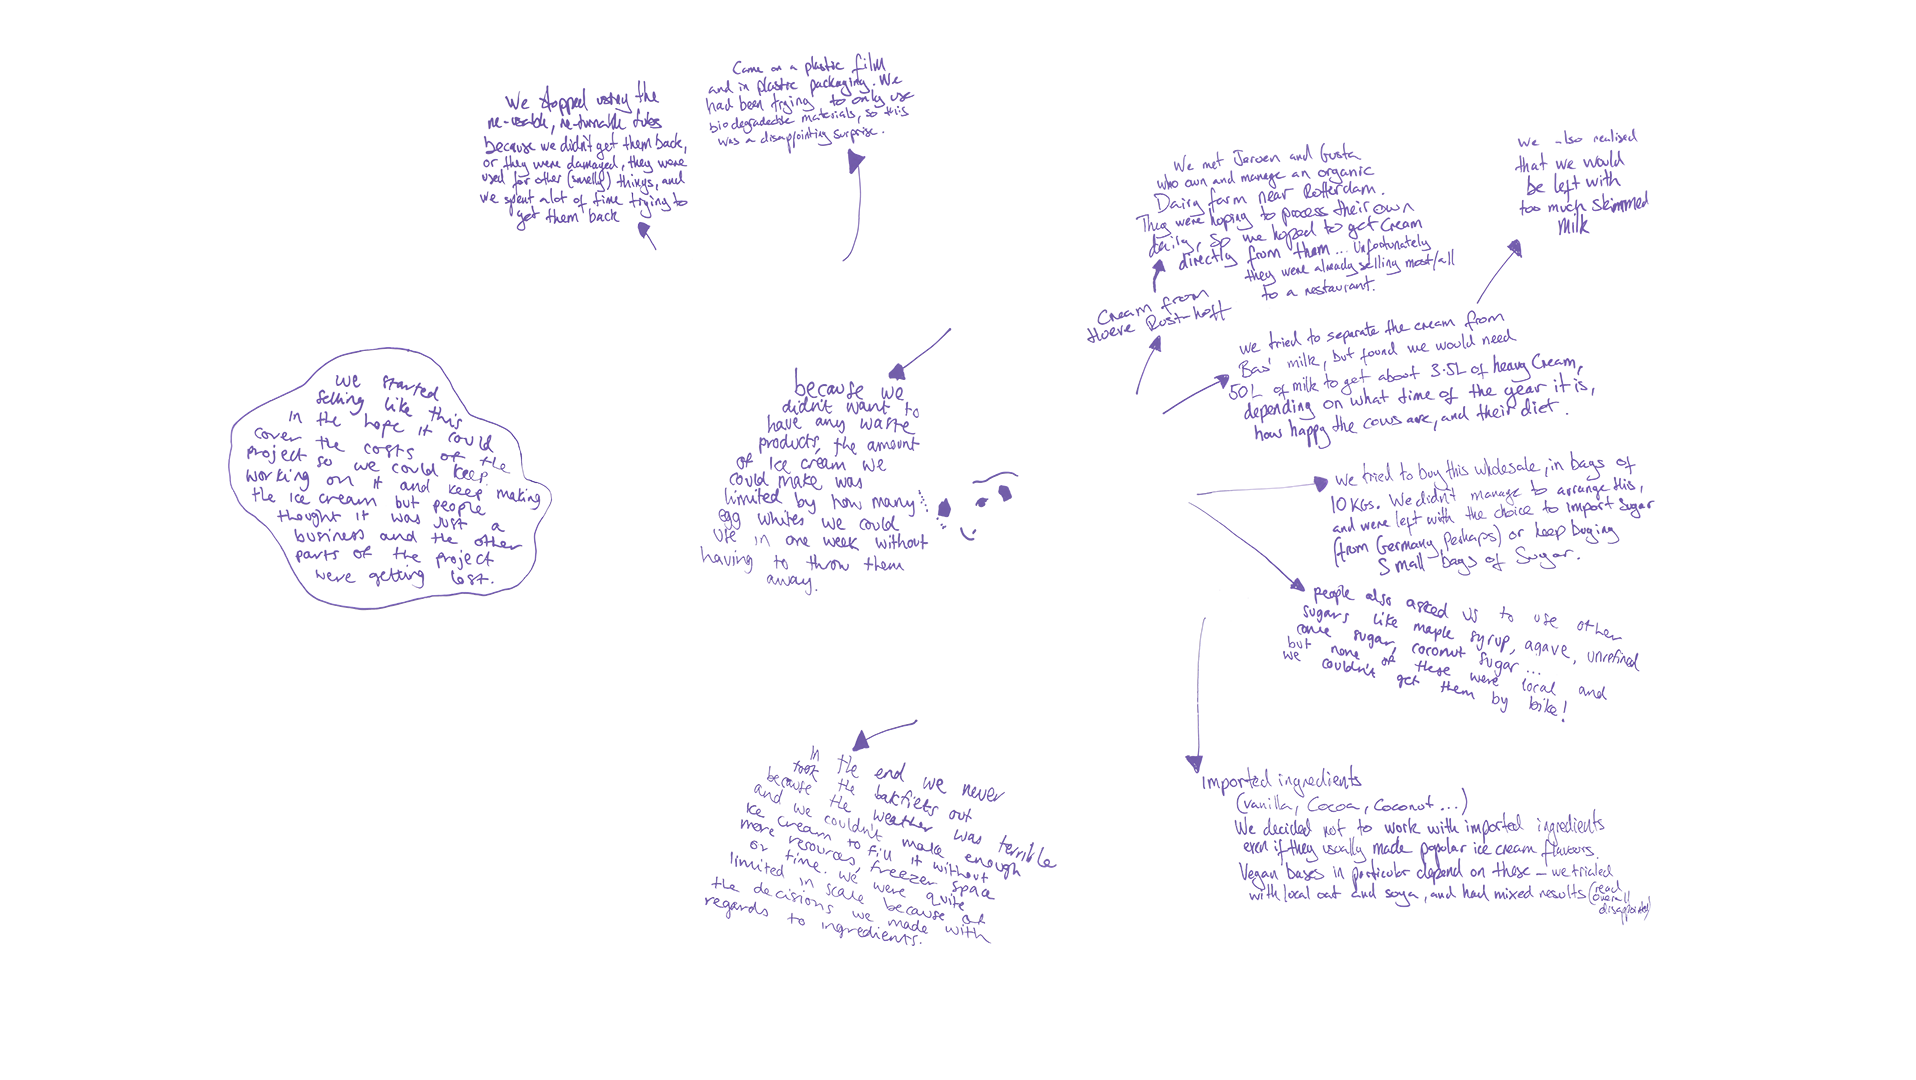 We stopped using the
re-usable, re-turnable tubs
because we didn't get them back,
or they were damaged, they were
used for other (smelly) things, and
we spent a lot of time trying to
get them back
Came on a plastic film
and in plastic packaging. We
had been trying to only use
biodegradeable materials, so this
was a disappointing surprise.
We met Jeroen and Gusta
who own and manage an organic
Dairy farm near Rotterdam.
They were hoping to process their own
daily, so we hoped to get cream
directly from them... Unfortunately
they were already selling most/all
to a restaurant.
We also realised
that we would
be left with
too much skimmed
milk
Cream from
Hoeve Rust-hoff
We tried to separate the cream from
Bas' milk, but found we would need
50L of milk to get about 3.5L of heavy cream,
depending on what time of the year it is,
how happy the cows are, and their diet.
we started
selling like this
in the hope it could
cover the costs of the
project so we could keep
working on it and keep making
the ice cream but people
thought it was just a
business and the other
parts of the project
were getting lost.
because we
didn't want to
have any waste
products, the amount
of ice cream we
could make was
limited by how many
egg whites we could
use in one week without
having to throw them
away.
We tried to buy this wholesale, in bags of
10 KGs. We didn't manage to arrange this,
and were left with the choice to import sugar
(from Germany perhaps) or keep buying
small bags of sugar.
people also asked us to use other
sugars like maple syrup, agave, unrefined
cane sugar, coconut sugar...
but none of these were local and
we couldn't get them by bike!
In the end we never
took the bakfiets out
because the weather was terrible
and we couldn't make enough
ice cream to fill it without
more resources, freezer space
or time. we were quite
limited in scale because of
the decisions we made with
regards to ingredients.
Imported ingredients
(vanilla, Cocoa, Coconut...)
We decided not to work with imported ingredients
even if they usually made popular ice cream flavours.
Vegan bases in particular depend on these – we trialed
with local oat and soya, and had mixed results (read
overall
disappointed)